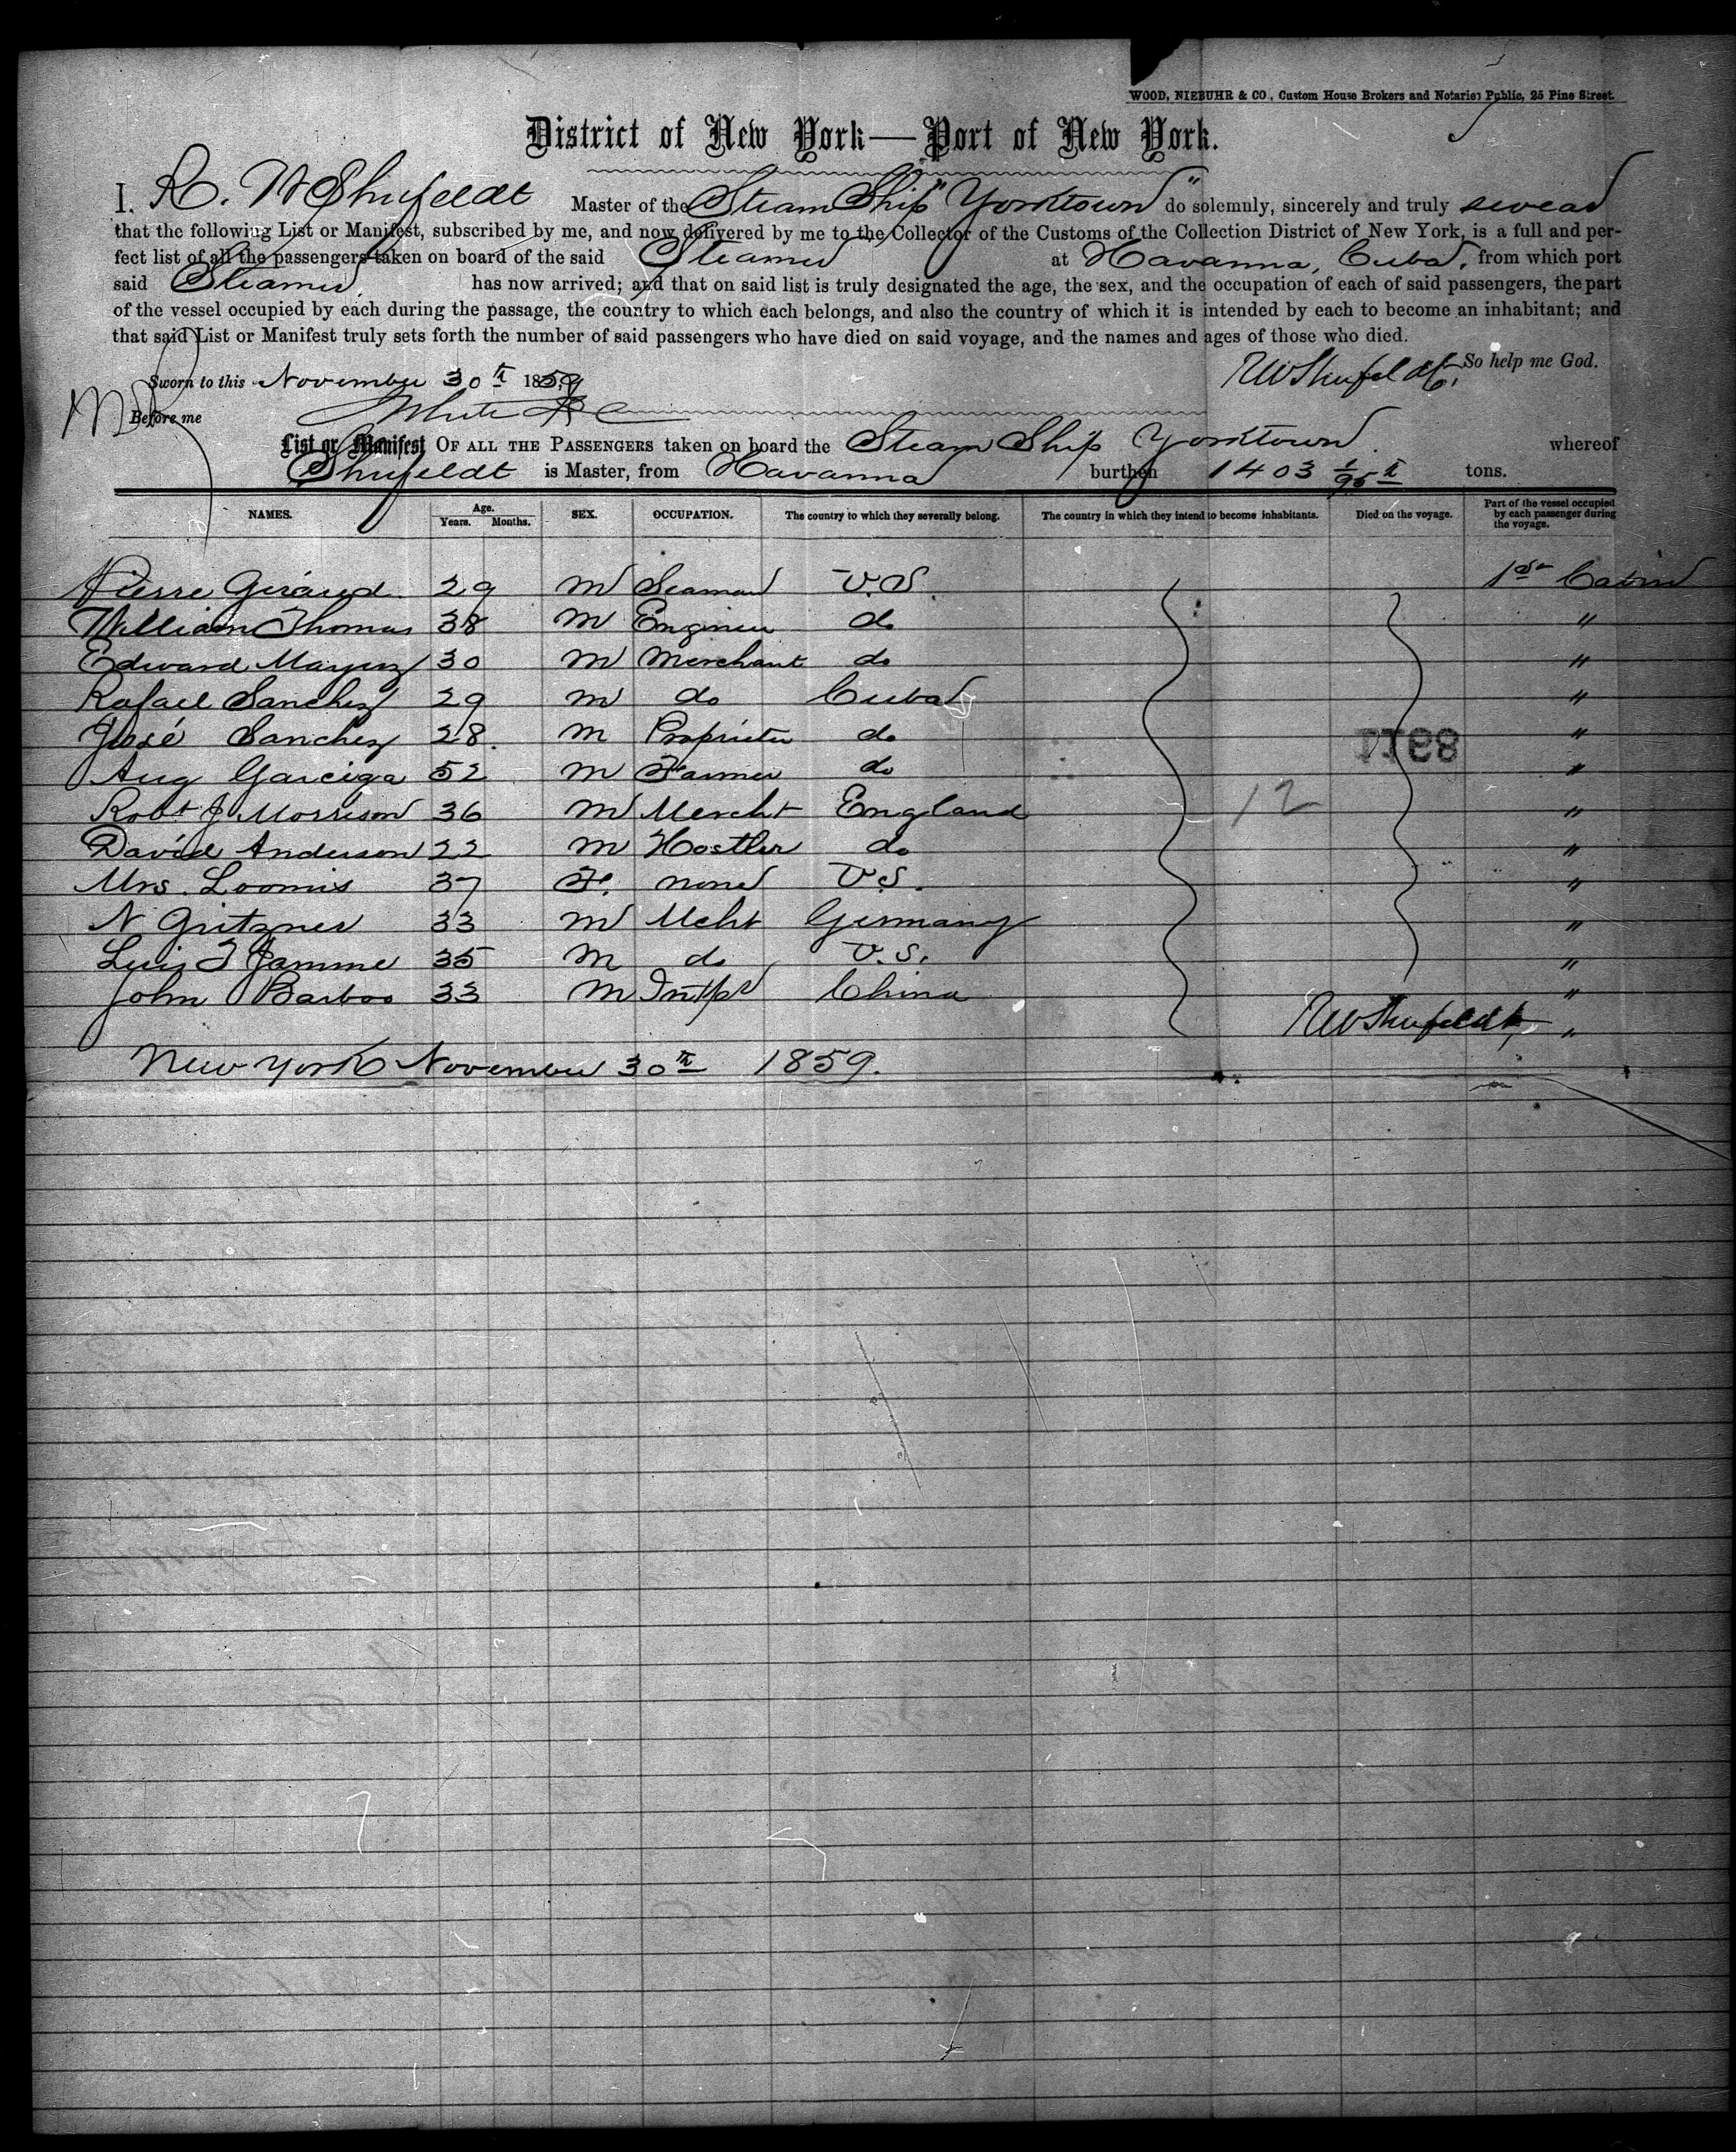 WOOD, NIEBUHR & CO., Custom House Brokers and Notaries Public, 25 Pine Street.
District of New York—Port of New York.
I, R. W Shufeldt Master of the Steam Ship "Yorktown" do solemnly, sincerely and truly swear
that the following List or Manifest, subscribed by me, and now delivered by me to the Collector of the Customs of the Collection District of New York, is a full and per-
fect list of all the passengers taken on board of the said Steamer at Havanna, Cuba, from which port
said Steamer has now arrived; and that on said list is truly designated the age, the sex, and the occupation of each of said passengers, the part
of the vessel occupied by each during the passage, the country to which each belongs, and also the country of which it is intended by each to become an inhabitant; and
that said List or Manifest truly sets forth the number of said passengers who have died on said voyage, and the names and ages of those who died.
Sworn to this November 30th 1859 RW Shufeldt, So help me God.
Before me White
List or Manifest OF ALL THE PASSENGERS taken on board the Steam Ship Yorktown whereof
Shufeldt is Master, from Havanna burthen 1403 1/95th tons.
NAMES. Age. Years. Months. SEX. OCCUPATION. The country to which they severally belong. The country in which they intend to become inhabitants. Died on the voyage. Part of the vessel occupied by each passenger during the voyage.
Pierre Giraud 29 M Seaman U.S. 1st Cabin
William Thomas 38 M Engineer do "
Edward 30 M Merchant do "
Rafael Sanchez 29 M do Cuba "
José Sanchez 28. M Proprietor do "
Aug Garciga 52 M Farmer do "
Robt J Morrison 36 M Mercht England 12 "
David Anderson 22 M Hostler do "
Mrs. Loomis 37 F. none U.S. "
N Gritzner 33 M Mcht Germany "
Luis F Jamme 35 M do U.S. "
John Barboo 33 M China "
RW Shufeldt, "
New York November 30th 1859.